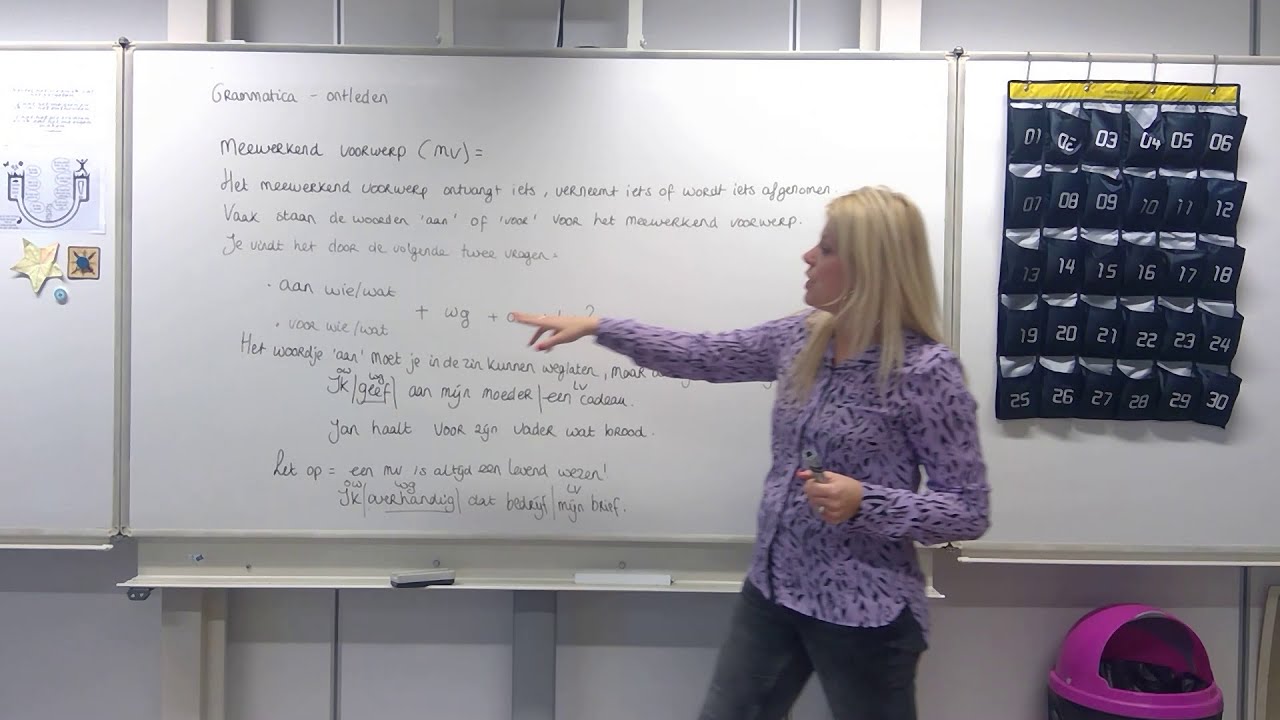 Grammatica - ontleden
Meewerkend voorwerp (mv) =
Het meewerkend voorwerp ontvangt iets, verneemt iets of wordt iets afgenomen.
Vaak staan de woorden 'aan' of 'voor' voor het meewerkend voorwerp.
Je vindt het door de volgende twee vragen =
· aan wie/wat
+ wg + ?
· voor wie/wat
Het woordje 'aan' moet je in de zin kunnen weglaten, maar
ow wg lv
Ik | geef | aan mijn moeder | een cadeau.
Jan haalt voor zijn vader wat brood.
Let op = een mv is altijd een levend wezen!
ow wg lv
Ik | overhandig | dat bedrijf | mijn brief.
01 02 03 04 05 06
07 08 09 10 11 12
13 14 15 16 17 18
19 20 21 22 23 24
25 26 27 28 29 30